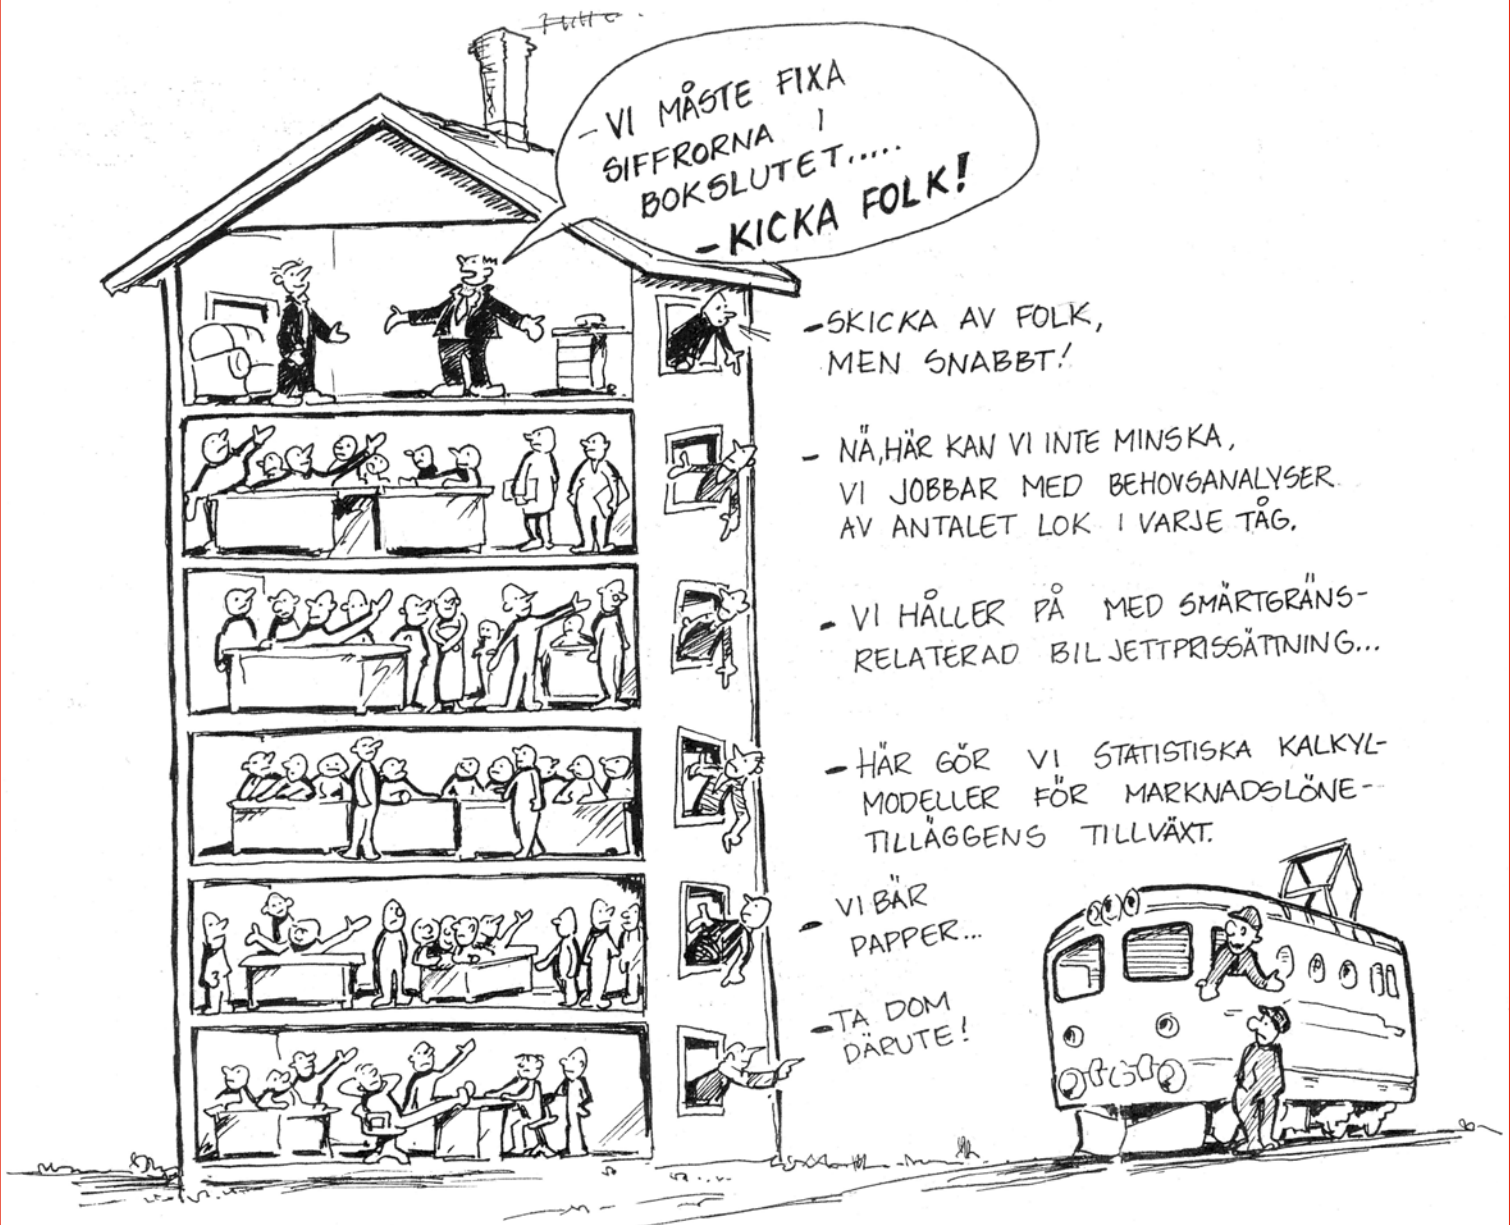 - VI MÅSTE FIXA
SIFFRORNA I
BOKSLUTET.....
- KICKA FOLK!
- SKICKA AV FOLK,
MEN SNABBT!
- NÄ, HÄR KAN VI INTE MINSKA,
VI JOBBAR MED BEHOVSANALYSER
AV ANTALET LOK I VARJE TÅG.
- VI HÅLLER PÅ MED SMÄRTGRÄNS-
RELATERAD BILJETTPRISSÄTTNING...
- HÄR GÖR VI STATISTISKA KALKYL-
MODELLER FÖR MARKNADSLÖNE-
TILLÄGGENS TILLVÄXT.
- VI BÄR
PAPPER...
- TA DOM
DÄRUTE!